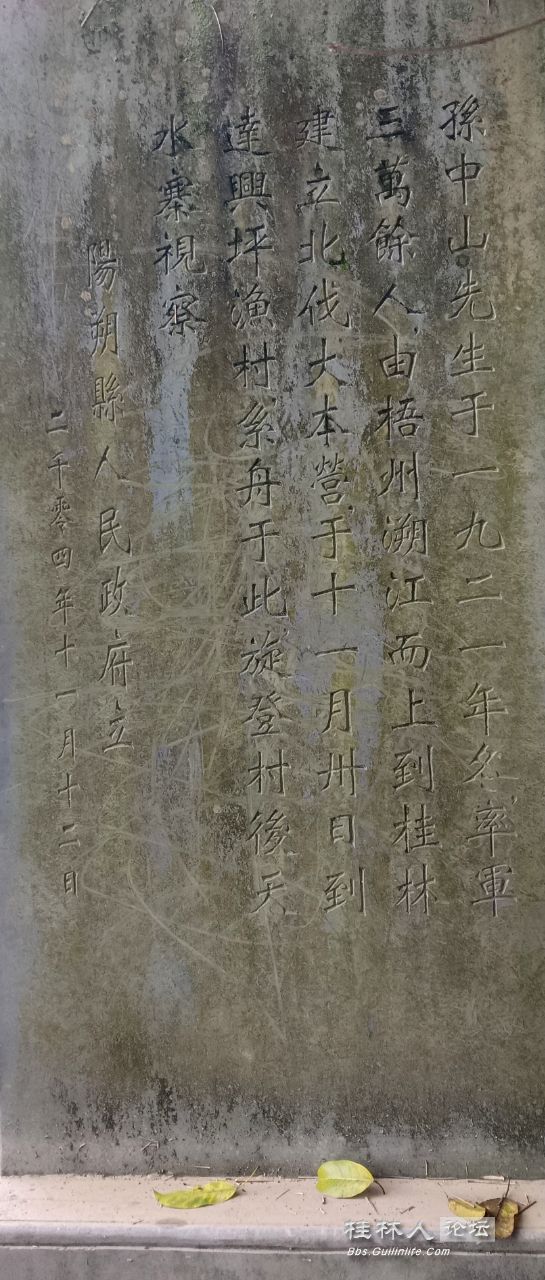 孫中山先生于一九二一年冬,率軍
三萬餘人,由梧州溯江而上到桂林
建立北伐大本營,于十一月卅日到
達興坪漁村系舟于此,旋登村後天
水寨視察
陽朔縣人民政府立
二千零四年十一月十二日
桂林人论坛
Bbs.Guilinlife.Com